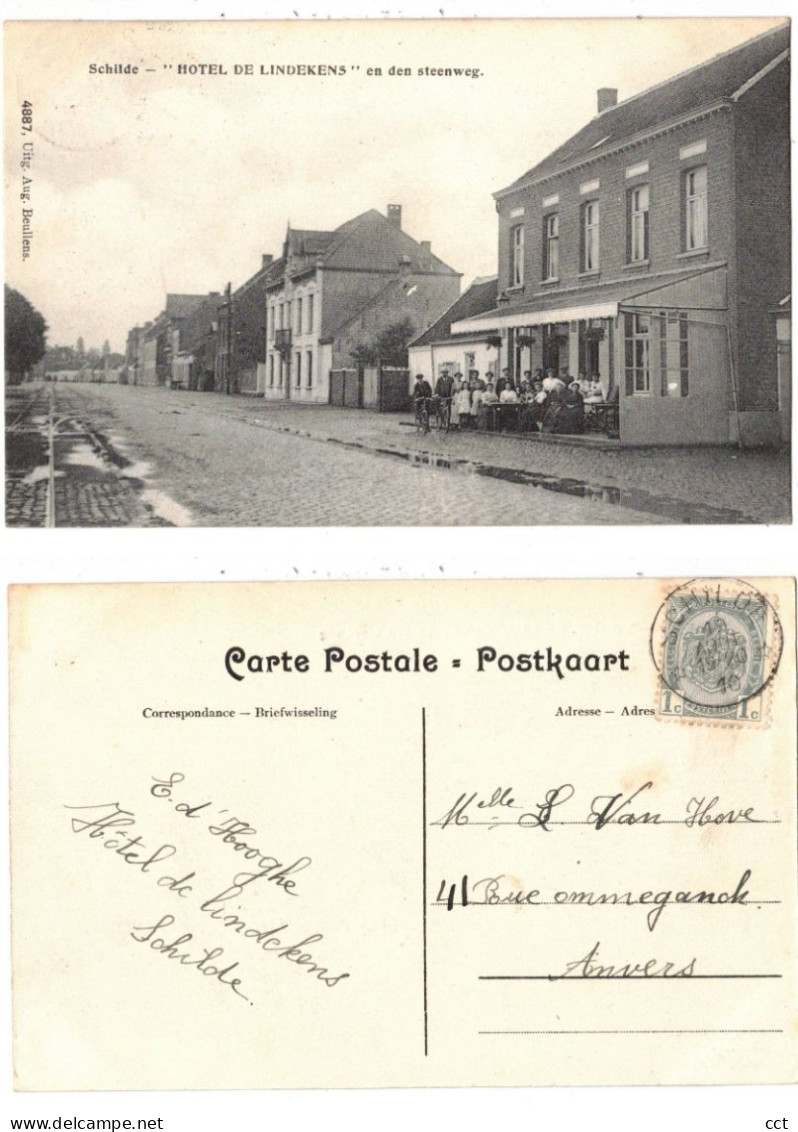 Schilde — "HOTEL DE LINDEKENS" en den steenweg.
4887, Uitg. Aug. Beullens.
Carte Postale = Postkaart
Correspondance — Briefwisseling
Adresse — Adres
SCHILDE
10
1c 1c
E. d'Hooghe
Hôtel de lindekens
Schilde.
Melle L. Van Hove
41 Rue ommeganck.
Anvers
© delcampe.net
cct